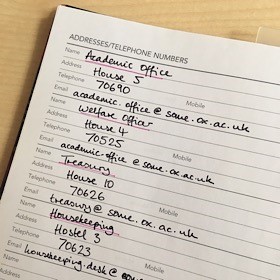 ADDRESSES/TELEPHONE NUMBERS
Name Academic Office
Address House 5
Telephone 70690 Mobile
Email academic.office@some.ox.ac.uk
Name Welfare Officer
Address House 4
Telephone 70525 Mobile
Email academic-office@some.ox.ac.uk
Name Treasury
Address House 10
Telephone 70626 Mobile
Email treasury@some.ox.ac.uk
Name Housekeeping
Address Hostel 3
Telephone 70623
Email housekeeping.desk@